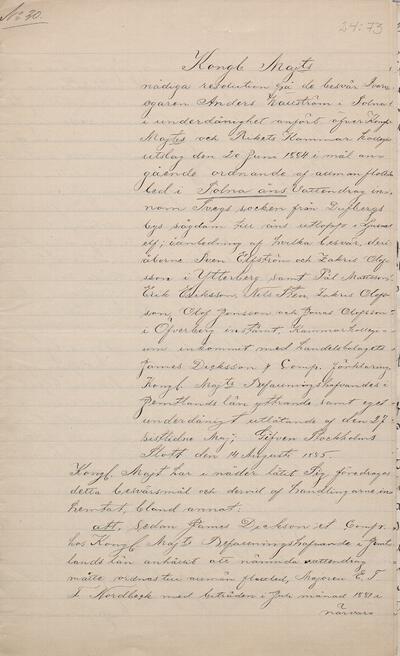 No 20.
24:73
Kongl Majts
nådiga resolution på de besvär
ägaren Anders i
i underdånighet anfört öfver Kongl
Majtes och Rikets Kammar Kollegii
utslag den 20 Juni 1884 i mål an
gående ordnande af allmän flott
led i Tolna åns vattendrag in-
nom Svegs socken från Dufbergs
bys sågdam till åns utlopp i Ljusne
elf; i anledning af hvilka besvär,
åborne Sven Elfström och Zakris Olof
sson i Ytterberg samt Pål Mattsson,
Erik Eriksson, Nils Sten, Zakris Olofs
son, Olof Jonsson och Jonas Olofsson
i Öfverberg Kammarkollegi-
um inkommit med handelsbolagets
James Dickson & Comp. förklaring
Kongl Majts Befallningshafvandes i
Jemtlands län yttrande samt eget
underdånigt utlåtande af den 27
sistlidne Maj; Gifven Stockholms
Slott den 14 Augusti 1885.
Kongl Majt har i nåder låtit Sig föredragas
detta besvärsmål och dervid af handlingarne in-
hemtat, bland annat:
att, sedan James Dickson et Comp.
hos Kongl Majts Befallningshafvande i Jemt
lands län anhållit att nämnda vattendrag
måtte ordnas till allmän flottled, Majoren E. T
I Nordbeck med biträden i Juli månad 1881 i
närvaro